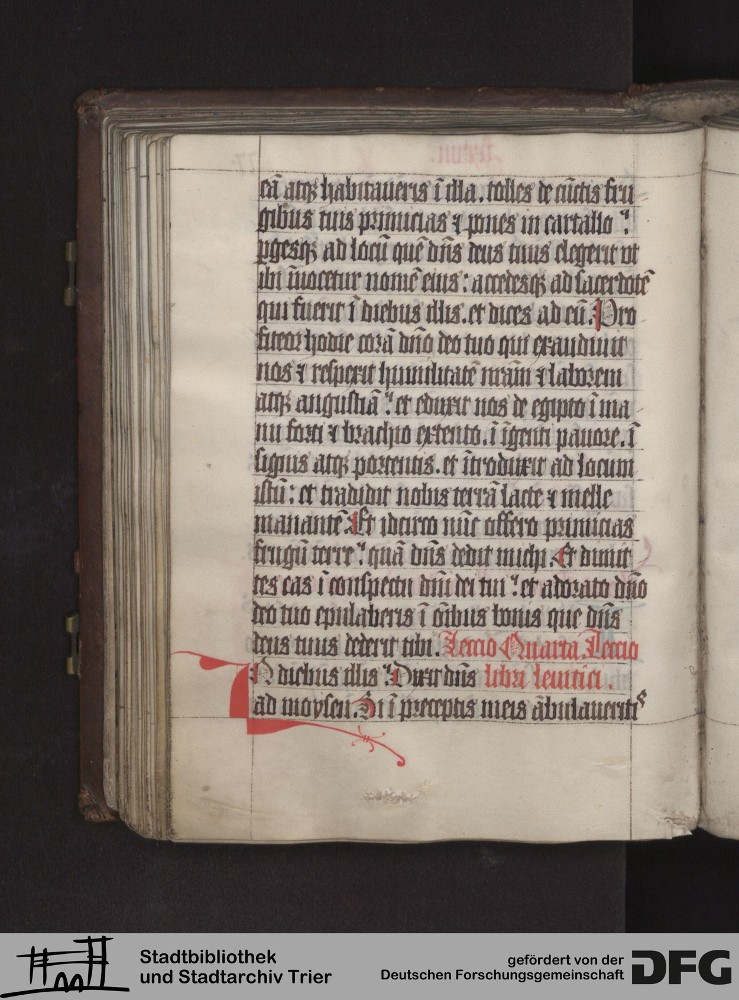 eā atqꝫ habitaueris ī illa. tolles de cūctis fru
gibus tuis primicias ⁊ pones in cartallo
ꝑgesqꝫ ad locū quē dn̄s deus tuus elegerit vt
ibi īuocetur nomē eius: accedesqꝫ ad sacerdotē
qui fuerit ī diebus illis. et dices ad eū. Pro
fiteor hodie corā dn̄o deo tuo qui exaudiuit
nos ⁊ respexit humilitatē nr̄am ⁊ laborem
atqꝫ angustiā: et eduxit nos de egipto ī ma
nu forti ⁊ brachio extento. ī īgenti pauore. ī
signis atqꝫ portentis. et ītroduxit ad locum
istū: et tradidit nobis terrā lacte ⁊ melle
manantē. Et idcirco nūc offero primicias
frugū terre: quā dn̄s dedit michi. Et dimit
tes eas ī conspectu dn̄i dei tui: et adorato dn̄o
deo tuo epulaberis ī oībus bonis que dn̄s
deus tuus dederit tibi. Leccio Quarta. Leccio
IN diebus illis: Dixit dn̄s libri leuitici.
ad moysen. Si ī preceptis meis ābulaueritis
Stadtbibliothek
und Stadtarchiv Trier
gefördert von der
Deutschen Forschungsgemeinschaft
DFG